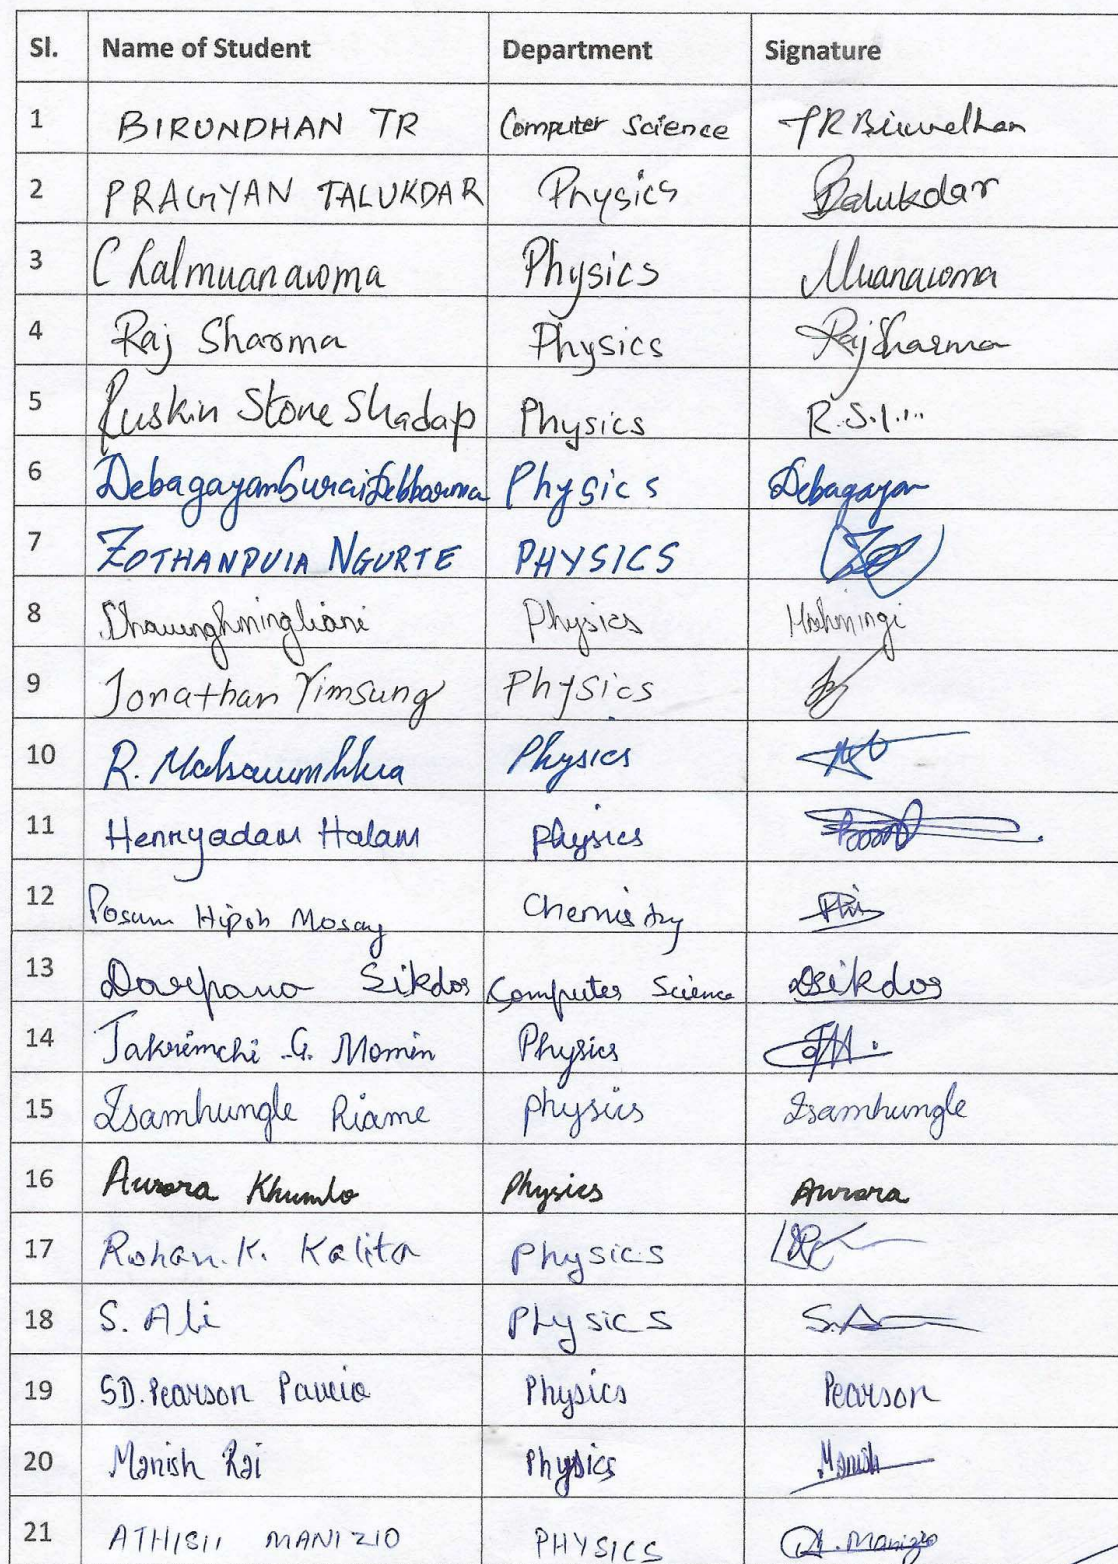 Sl. Name of Student Department Signature
1 BIRUNDHAN TR Computer Science TR Birundhan
2 PRAGYAN TALUKDAR Physics Talukdar
3 C Lalmuanawma Physics Muanawma
4 Raj Sharma Physics Raj Sharma
5 Ruskin Stone Shadap Physics R.S.
6 Debagayan Physics Debagayan
7 ZOTHANPUIA NGURTE PHYSICS
8 Physics
9 Jonathan Yimsung Physics
10 R. Physics
11 Henryadam Halam Physics
12 Posum Hipoh Mosay Chemistry
13 Darpana Sikdar Computer Science DSikdar
14 Jakrimchi G. Momin Physics
15 Isamhungle Riame Physics Isamhungle
16 Aurora Khumlo Physics Aurora
17 Rohan. K. Kalita Physics
18 S. Ali Physics S.A
19 SD. Pearson Physics Pearson
20 Manish Rai Physics Manish
21 ATHISII MANIZIO PHYSICS A. Manizio